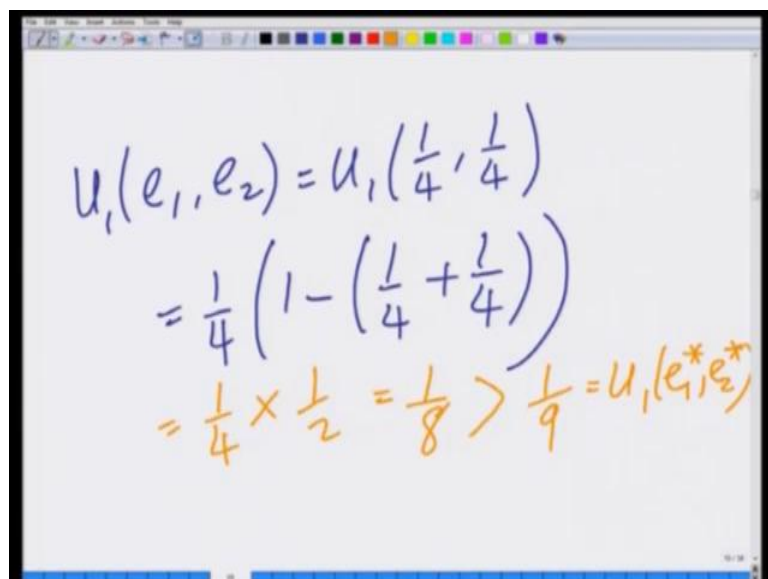 File Edit View Insert Actions Tools Help
u₁(e₁, e₂) = u₁(1/4, 1/4)
= 1/4 (1 - (1/4 + 1/4))
= 1/4 × 1/2 = 1/8 > 1/9 = u₁(e₁*, e₂*)